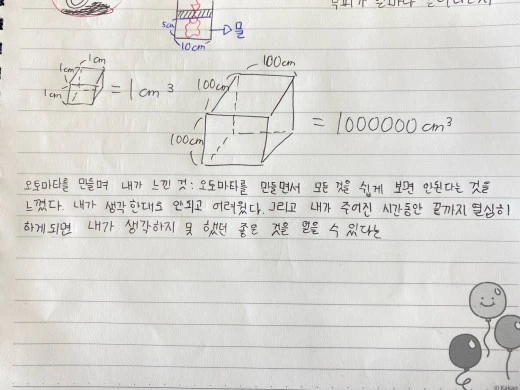 5cm
→물
10cm
1cm
1cm
1cm
= 1cm³
100cm
100cm
100cm
= 1000000cm³
오토마타를 만들며 내가 느낀 것: 오토마타를 만들면서 모든 것을 쉽게 보면 안된다는 것을
느꼈다. 내가 생각한대로 안되고 어려웠다. 그리고 내가 주어진 시간동안 끝까지 열심히
하게되면 내가 생각하지 못 했던 좋은 것을 얻을 수 있다는